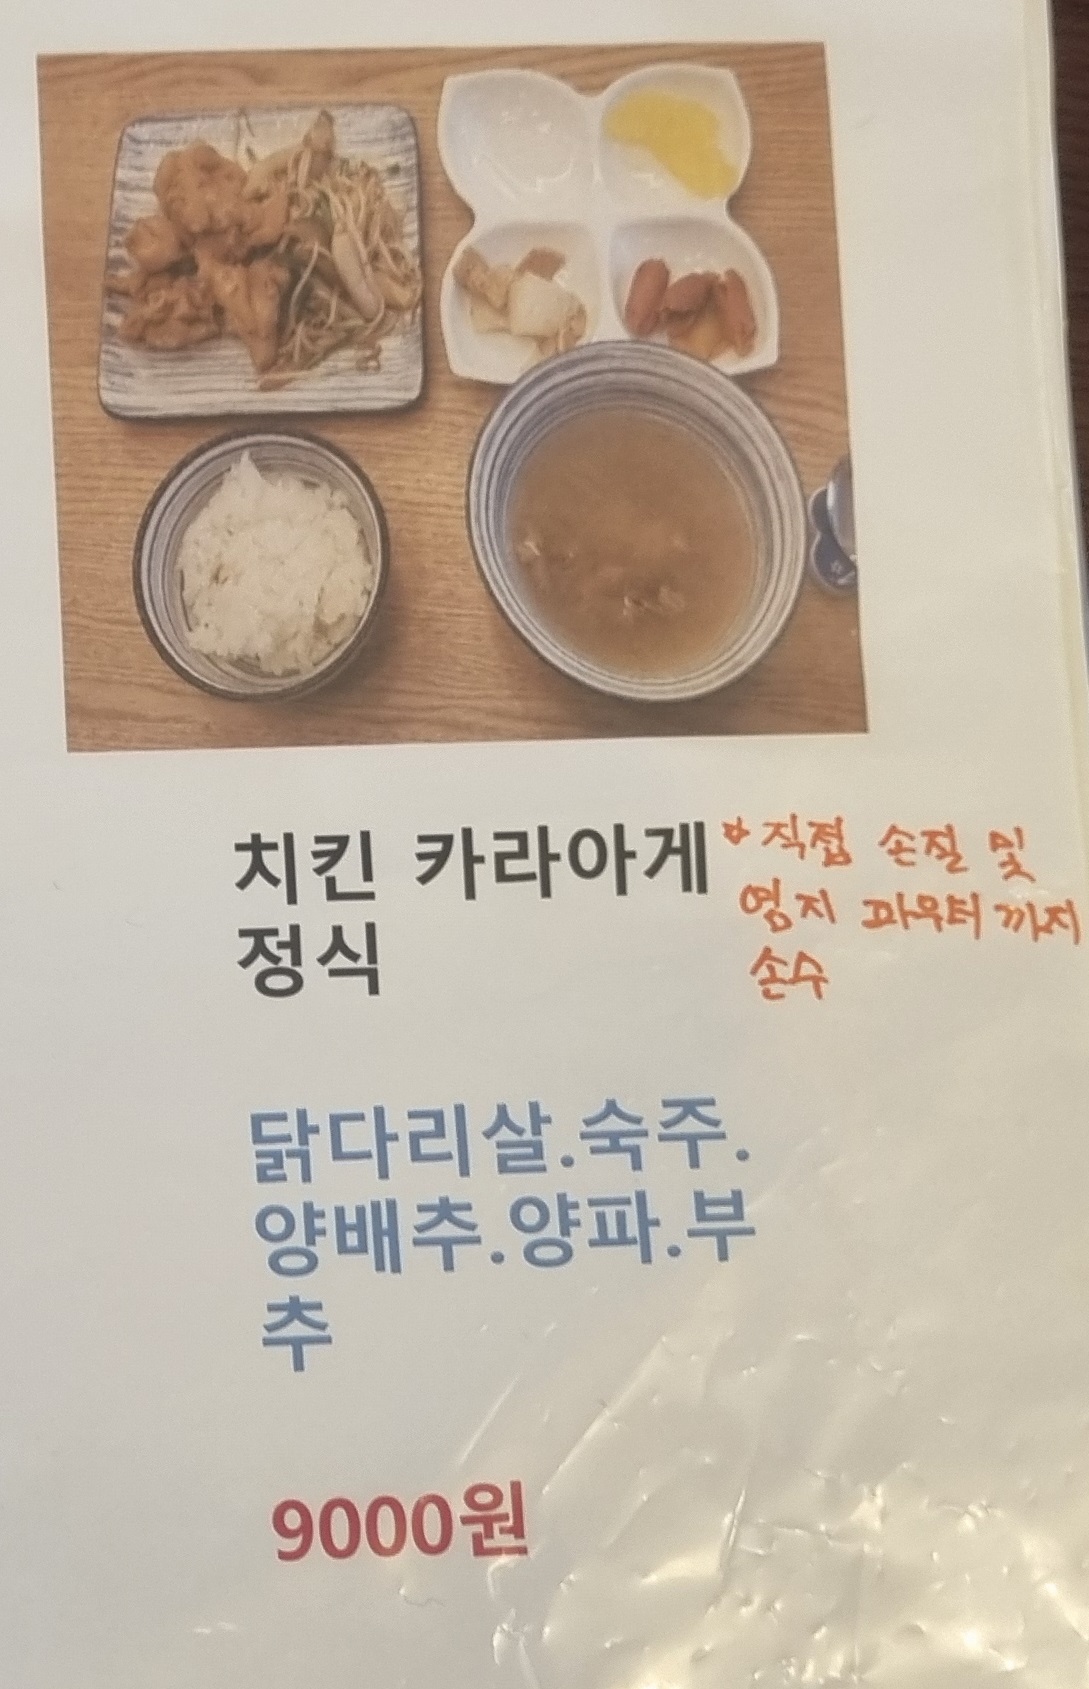 치킨 카라아게
정식
*직접 손질 및
염지 파우더 까지
손수
닭다리살.숙주.
양배추.양파.부
추
9000원